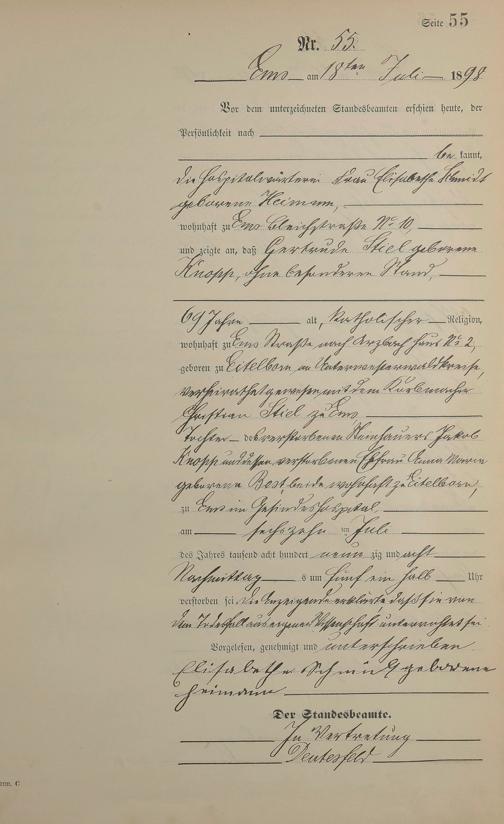 Seite 55
Nr. 55.
Ems am 18ten Juli 1898
Vor dem unterzeichneten Standesbeamten erschien heute, der
Persönlichkeit nach
be kannt,
die Hospitalwärterin Frau Elisabethe Schmidt
geborene Heimann,
wohnhaft zu Ems Bleichstraße No 10,
und zeigte an, daß Gertrude Stiel geborene
Knopp, ohne besonderen Stand,
69 Jahre alt, katholischer Religion,
wohnhaft zu Ems Straße nach Arzbach Haus No 2,
geboren zu Eitelborn, im Unterwesterwaldkreise,
verheirathet gewesen mit dem Korbmacher
Christian Stiel zu Ems
Tochter des verstorbenen Steinhauers Jakob
Knopp und dessen verstorbenen Ehefrau Anna Maria
geborene Bost, beide wohnhaft zu Eitelborn,
zu Ems im Hospital
am sechszehn ten Juli
des Jahres tausend acht hundert neun zig und acht
Nachmittag s um fünf ein halb Uhr
verstorben sei. Die Anzeigende erklärte, daß sie von
dem Todesfall aus eigener Wissenschaft unterrichtet sei
Vorgelesen, genehmigt und unterschrieben
Elisabethe Schmidt geborene
Heimann
Der Standesbeamte.
In Vertretung